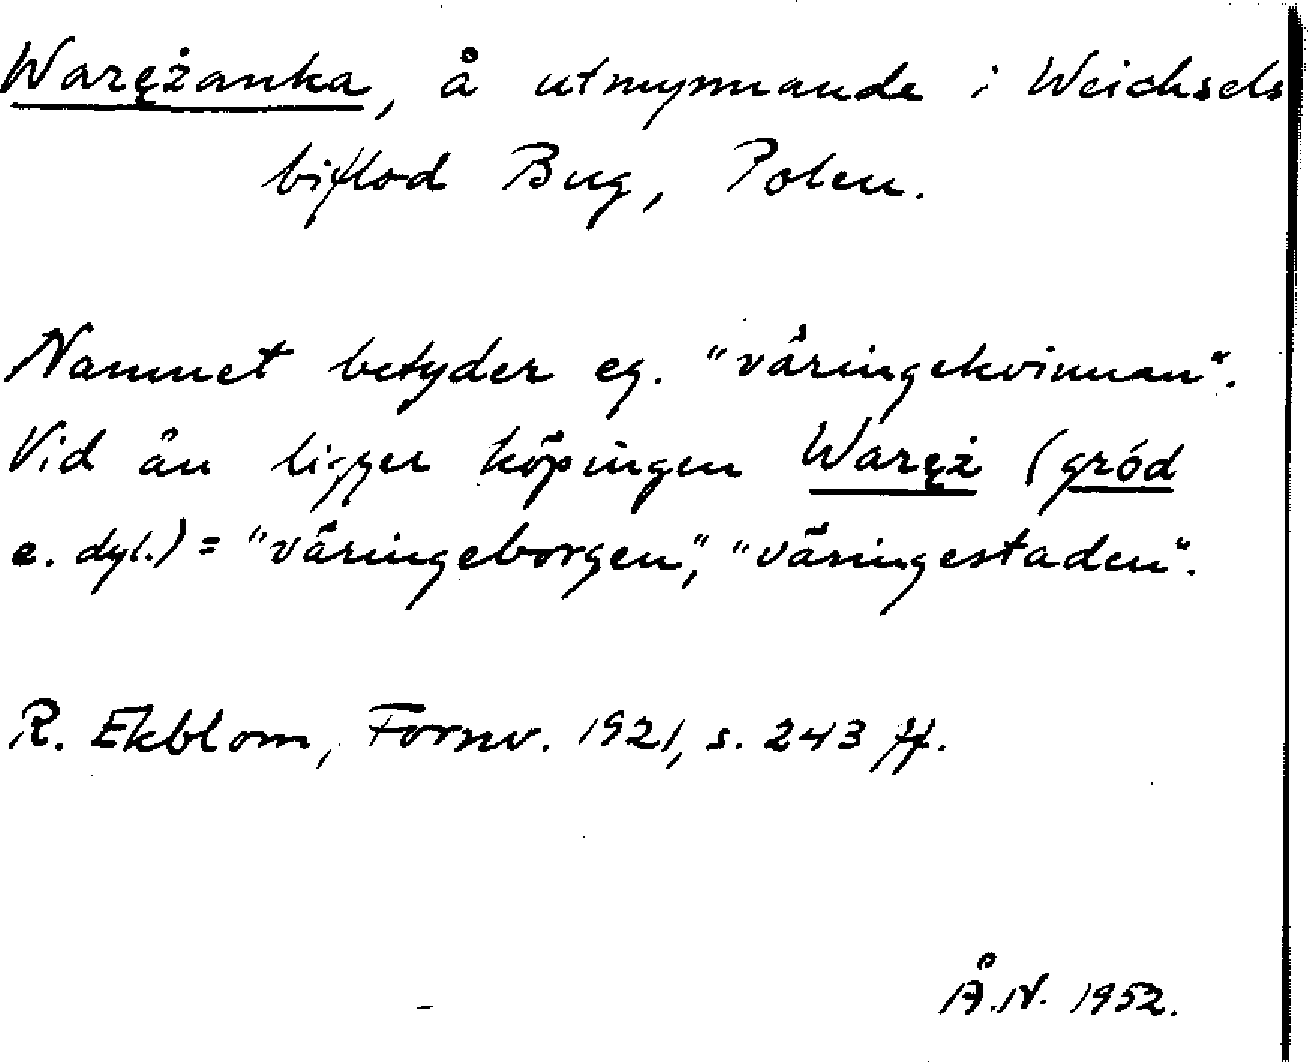 Waręžanka, å utmynnande i Weichsels
biflod Bug, Polen.
Namnet betyder eg. "väringekvinnan".
Vid ån ligger köpingen Waręż (gród
e. dyl.) = "väringeborgen", "väringestaden".
R. Ekblom, Fornv. 1921, s. 243 ff.
Å.N. 1952.